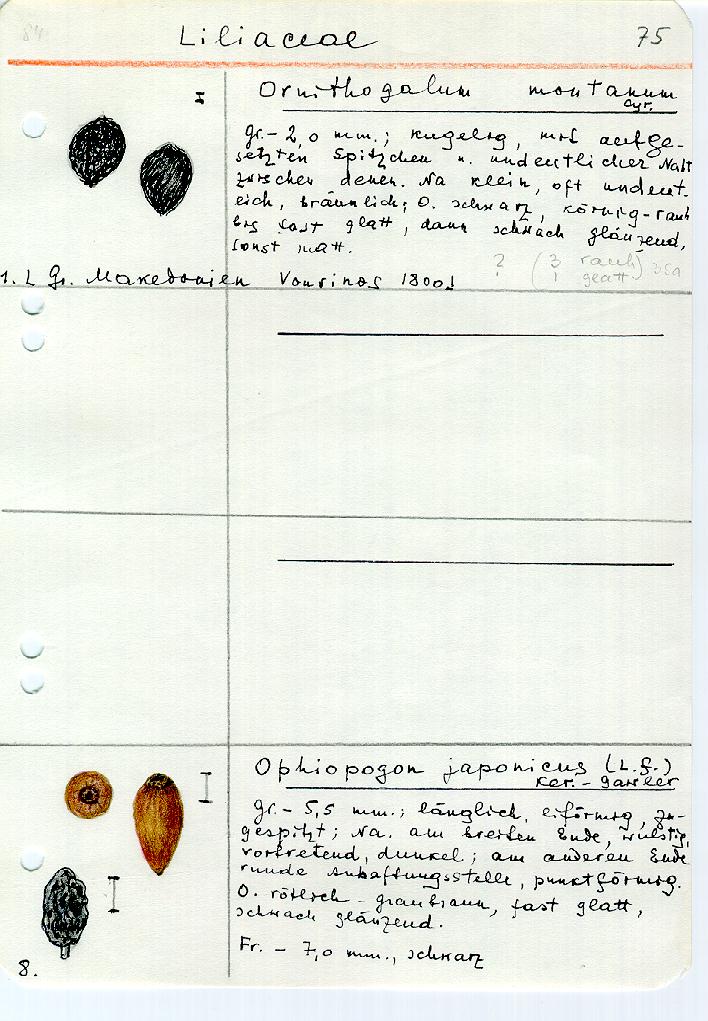 84
Liliaceae
75
Ornithogalum montanum
Cyr.
gr.- 2,0 mm.; kugelig, mit aufge-
setzten Spitzchen u. undeutlicher Naht
zwischen denen. Na klein, oft undeut-
lich, bräunlich; O. schwarz, körnig-rauh
bis fast glatt, dann schwach glänzend,
sonst matt.
2 (3 rauh
1 glatt)
1. L Gr. Makedonien Vourinos 1800!
Ophiopogon japonicus (L.f.)
Ker.-Gawler
gr.- 5,5 mm.; länglich, eiförmig, zu-
gespitzt; Na. am breiten Ende, wulstig,
vortretend, dunkel; am anderen Ende
runde Anhaftungsstelle, punktförmig.
O. rötlich-graubraun, fast glatt,
schwach glänzend.
Fr. - 7,0 mm., schwarz
8.